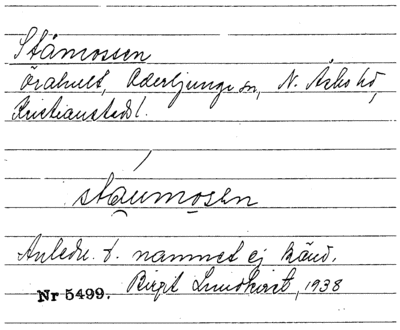 Ståmossen
Örahult, Oderljunga sn, N. Åsbo hd,
Kristianstads l.
staumosen
Anledn. t. namnet ej känd.
Nr 5499. Birgit Lundkvist, 1938